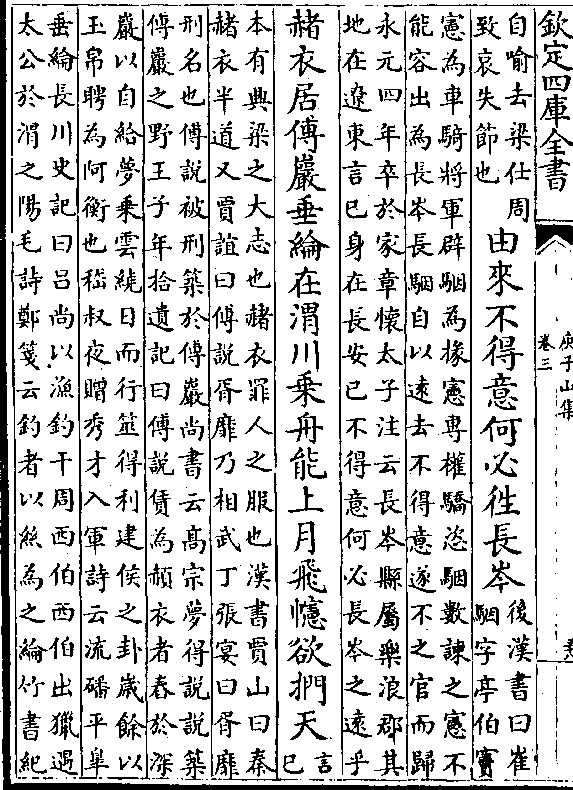 欽定四庫全書
庾子山集
卷三
自喻去梁仕周
致哀失節也
由來不得意何必徃長岑
後漢書曰崔
駰字亭伯竇
憲為車騎將軍辟駰為掾憲専權驕恣駰數諫之憲不
能容出為長岑長駰自以逺去不得意遂不之官而歸
永元四年卒於家章懐太子注云長岑縣屬樂浪郡其
地在遼東言已身在長安已不得意何必長岑之逺乎
赭衣居傅巖垂綸在渭川乗舟能上月飛幰欲捫天
言
已
本有興梁之大志也赭衣罪人之服也漢書賈山曰秦
赭衣半道又賈誼曰傅說胥靡乃相武丁張宴曰胥靡
刑名也傅說被刑築於傅巖尚書云髙宗夢得說說築
傅巖之野王子年拾遺記曰傅說賃為赬衣者舂於深
巖以自給夢乗雲繞日而行筮得利建侯之卦歳餘以
玉帛聘為阿衡也嵇叔夜贈秀才入軍詩云流磻平臯
垂綸長川史記曰吕尚以漁釣干周西伯西伯出獵遇
太公於渭之陽毛詩鄭箋云釣者以絲為之綸竹書紀